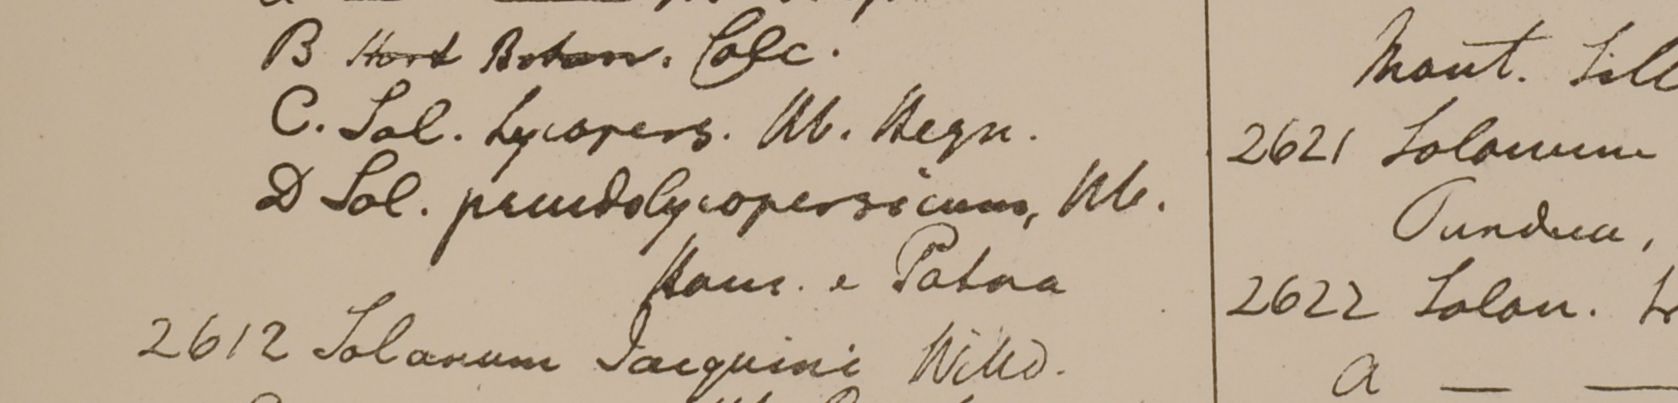 B Hort Botan. Calc.
C. Sol. Lycopers. Hb. Heyn.
D Sol. pseudolycopersicum, Hb.
Ham. e Patna
2612 Solanum Jacquini Willd.
Mont. Sill
2621 Solanum
Pundua,
2622 Solan.
a — —